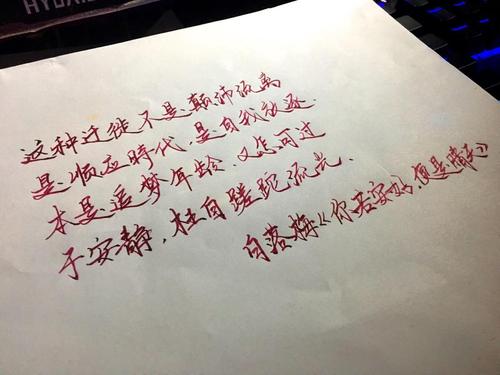 HYUXI
这种迁徙不是颠沛流离
是顺应時代,是自我放逐.
本是追梦年龄,又怎可过
于安静,枉自蹉跎流光.
白落梅《你若安好,便是晴天》